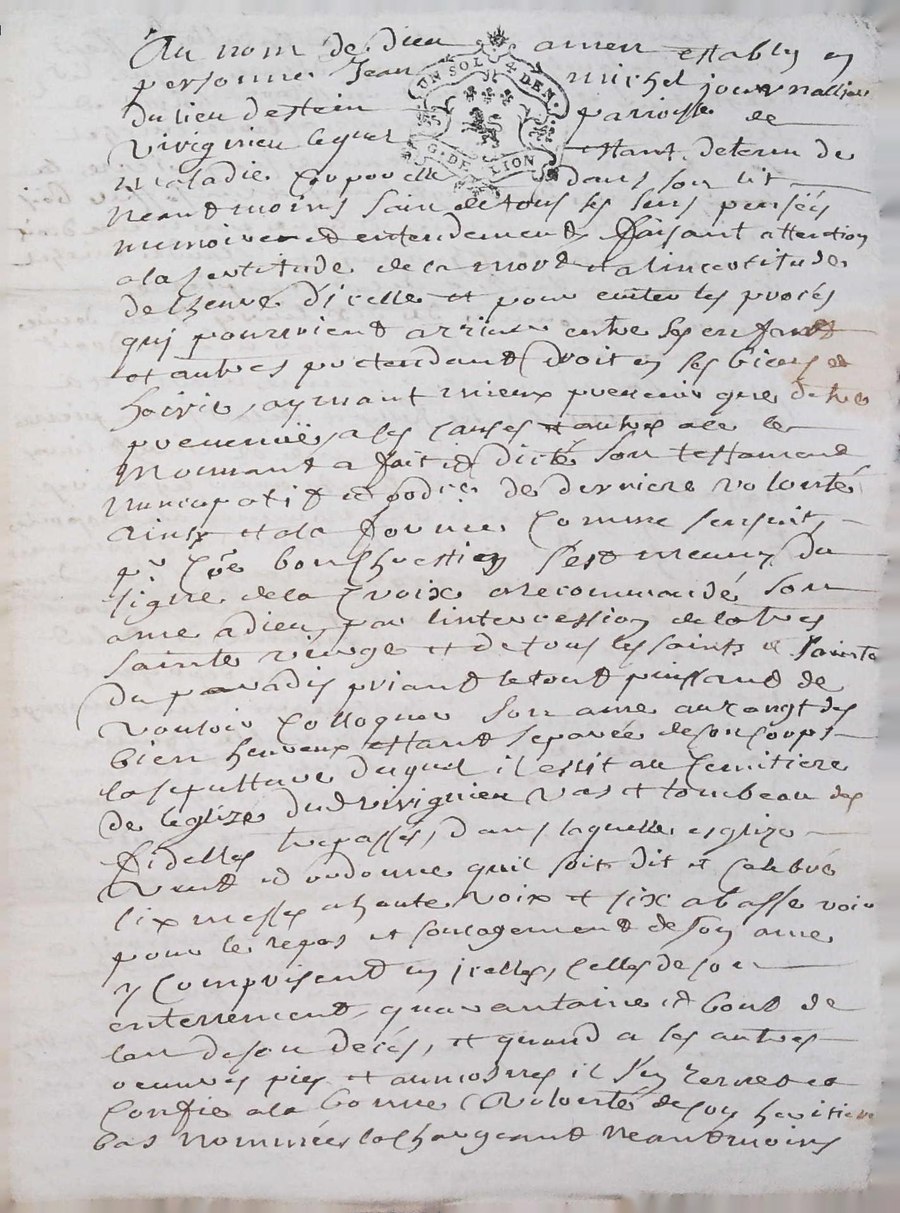 Au nom de dieu amen estably en
personne Jean michel journallier
du lieu destein parroisse de
Vivignieu lequel estant detenu de
UN SOL 4 DEN.
G. DE LION
maladie corporelle dans son lit
neantmoins sain de tous ses sens pensées
memoire et entendement faisant attention
a la sertitude de la mort et a lincertitude
de lheure dicelle et pour eviter les procés
qui pourroient arriver entre ses enfants
et autres pretendant droit en ses biens et
hoirie, aymant mieux prevenir que detre
prevenu, a ces causes et autres a ce le
mouvant a fait et dicté son testament
nuncupatif et de derniere volonté
ainsy et a la forme comme sensuit
bon chrestien sest muny du
signe de la Croix a recommandé son
ame a dieu, par lintercession de la tres
sainte vierge et de tous les saints et saintes
du paradis priant le tout puissant de
vouloir colloquer son ame au rangt des
bien heureux estant separée de son corps
la sepulture duquel il eslit au Cemitiere
de leglize dud vivignieu vas et tombeau des
fidelles trepassés, dans laquelle esglize
veut et ordonne quil soit dit et celebré
six messes a haute voix et six a basse voix
pour le repos et soulagement de son ame
y comprisent en jcelles, celles de son
enterrement, quarantaine et bout de
lan de son décés, et quand a les autres
oeuvres pies et aumosnes il sen remet et
confie a la bonne volonté de son heritiere
bas nommée, la chargeant neantmoins